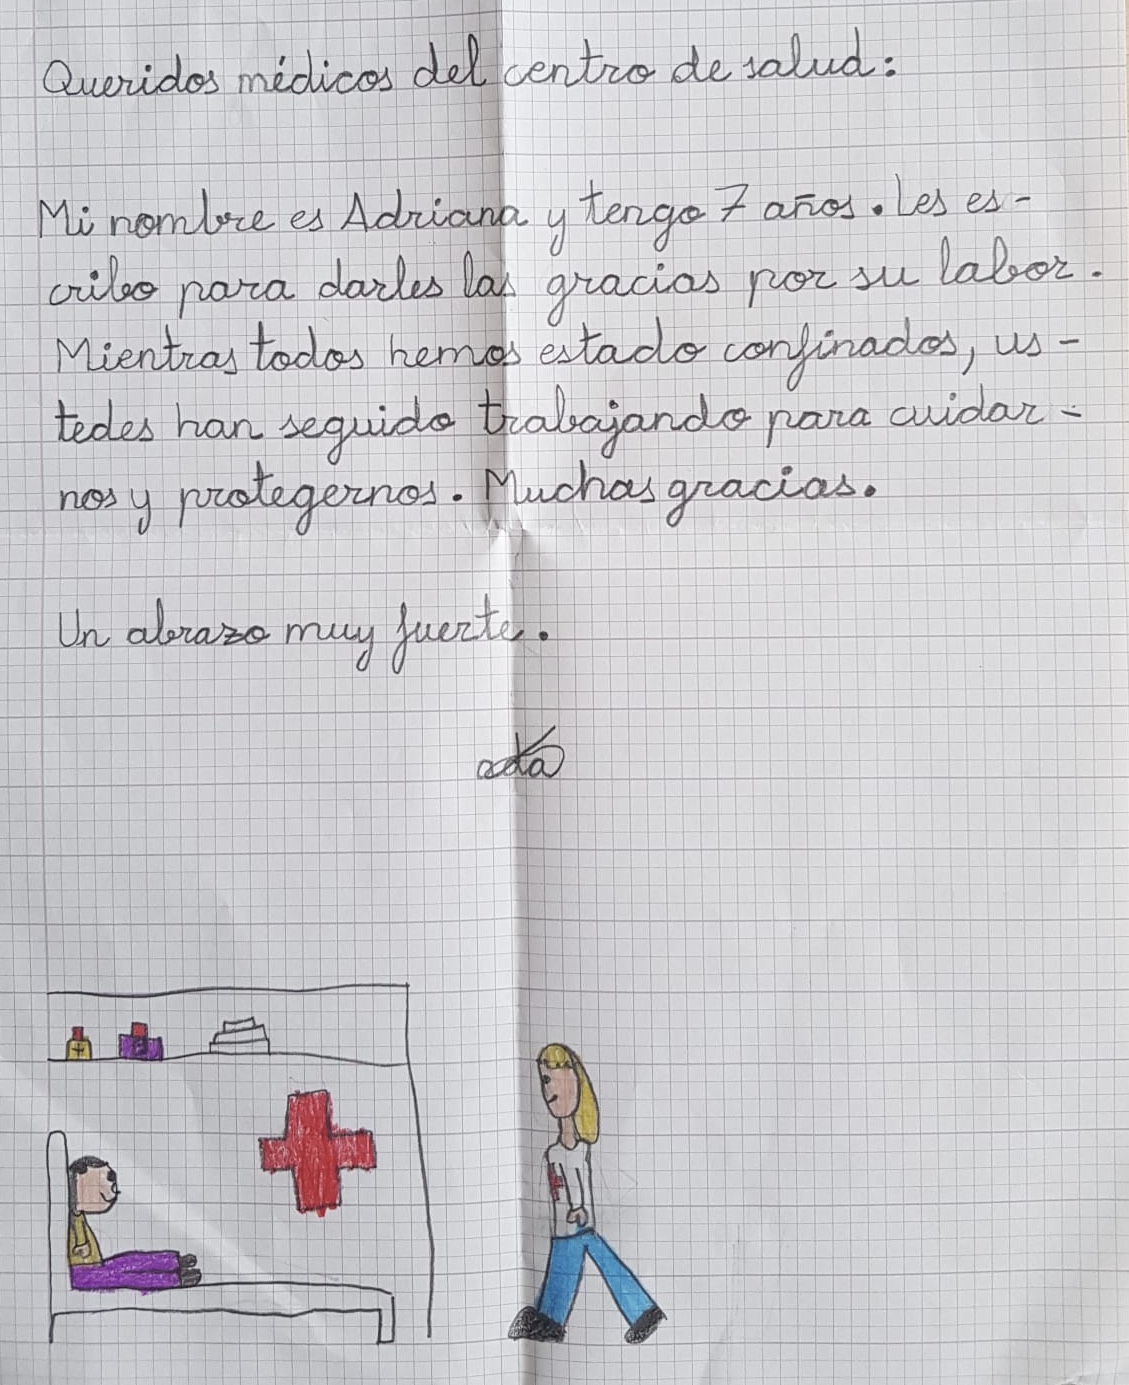 Queridos médicos del centro de salud:
Mi nombre es Adriana y tengo 7 años. Les es-
cribo para darles las gracias por su labor.
Mientras todos hemos estado confinados, us-
tedes han seguido trabajando para cuidar-
nos y protegernos. Muchas gracias.
Un abrazo muy fuerte.